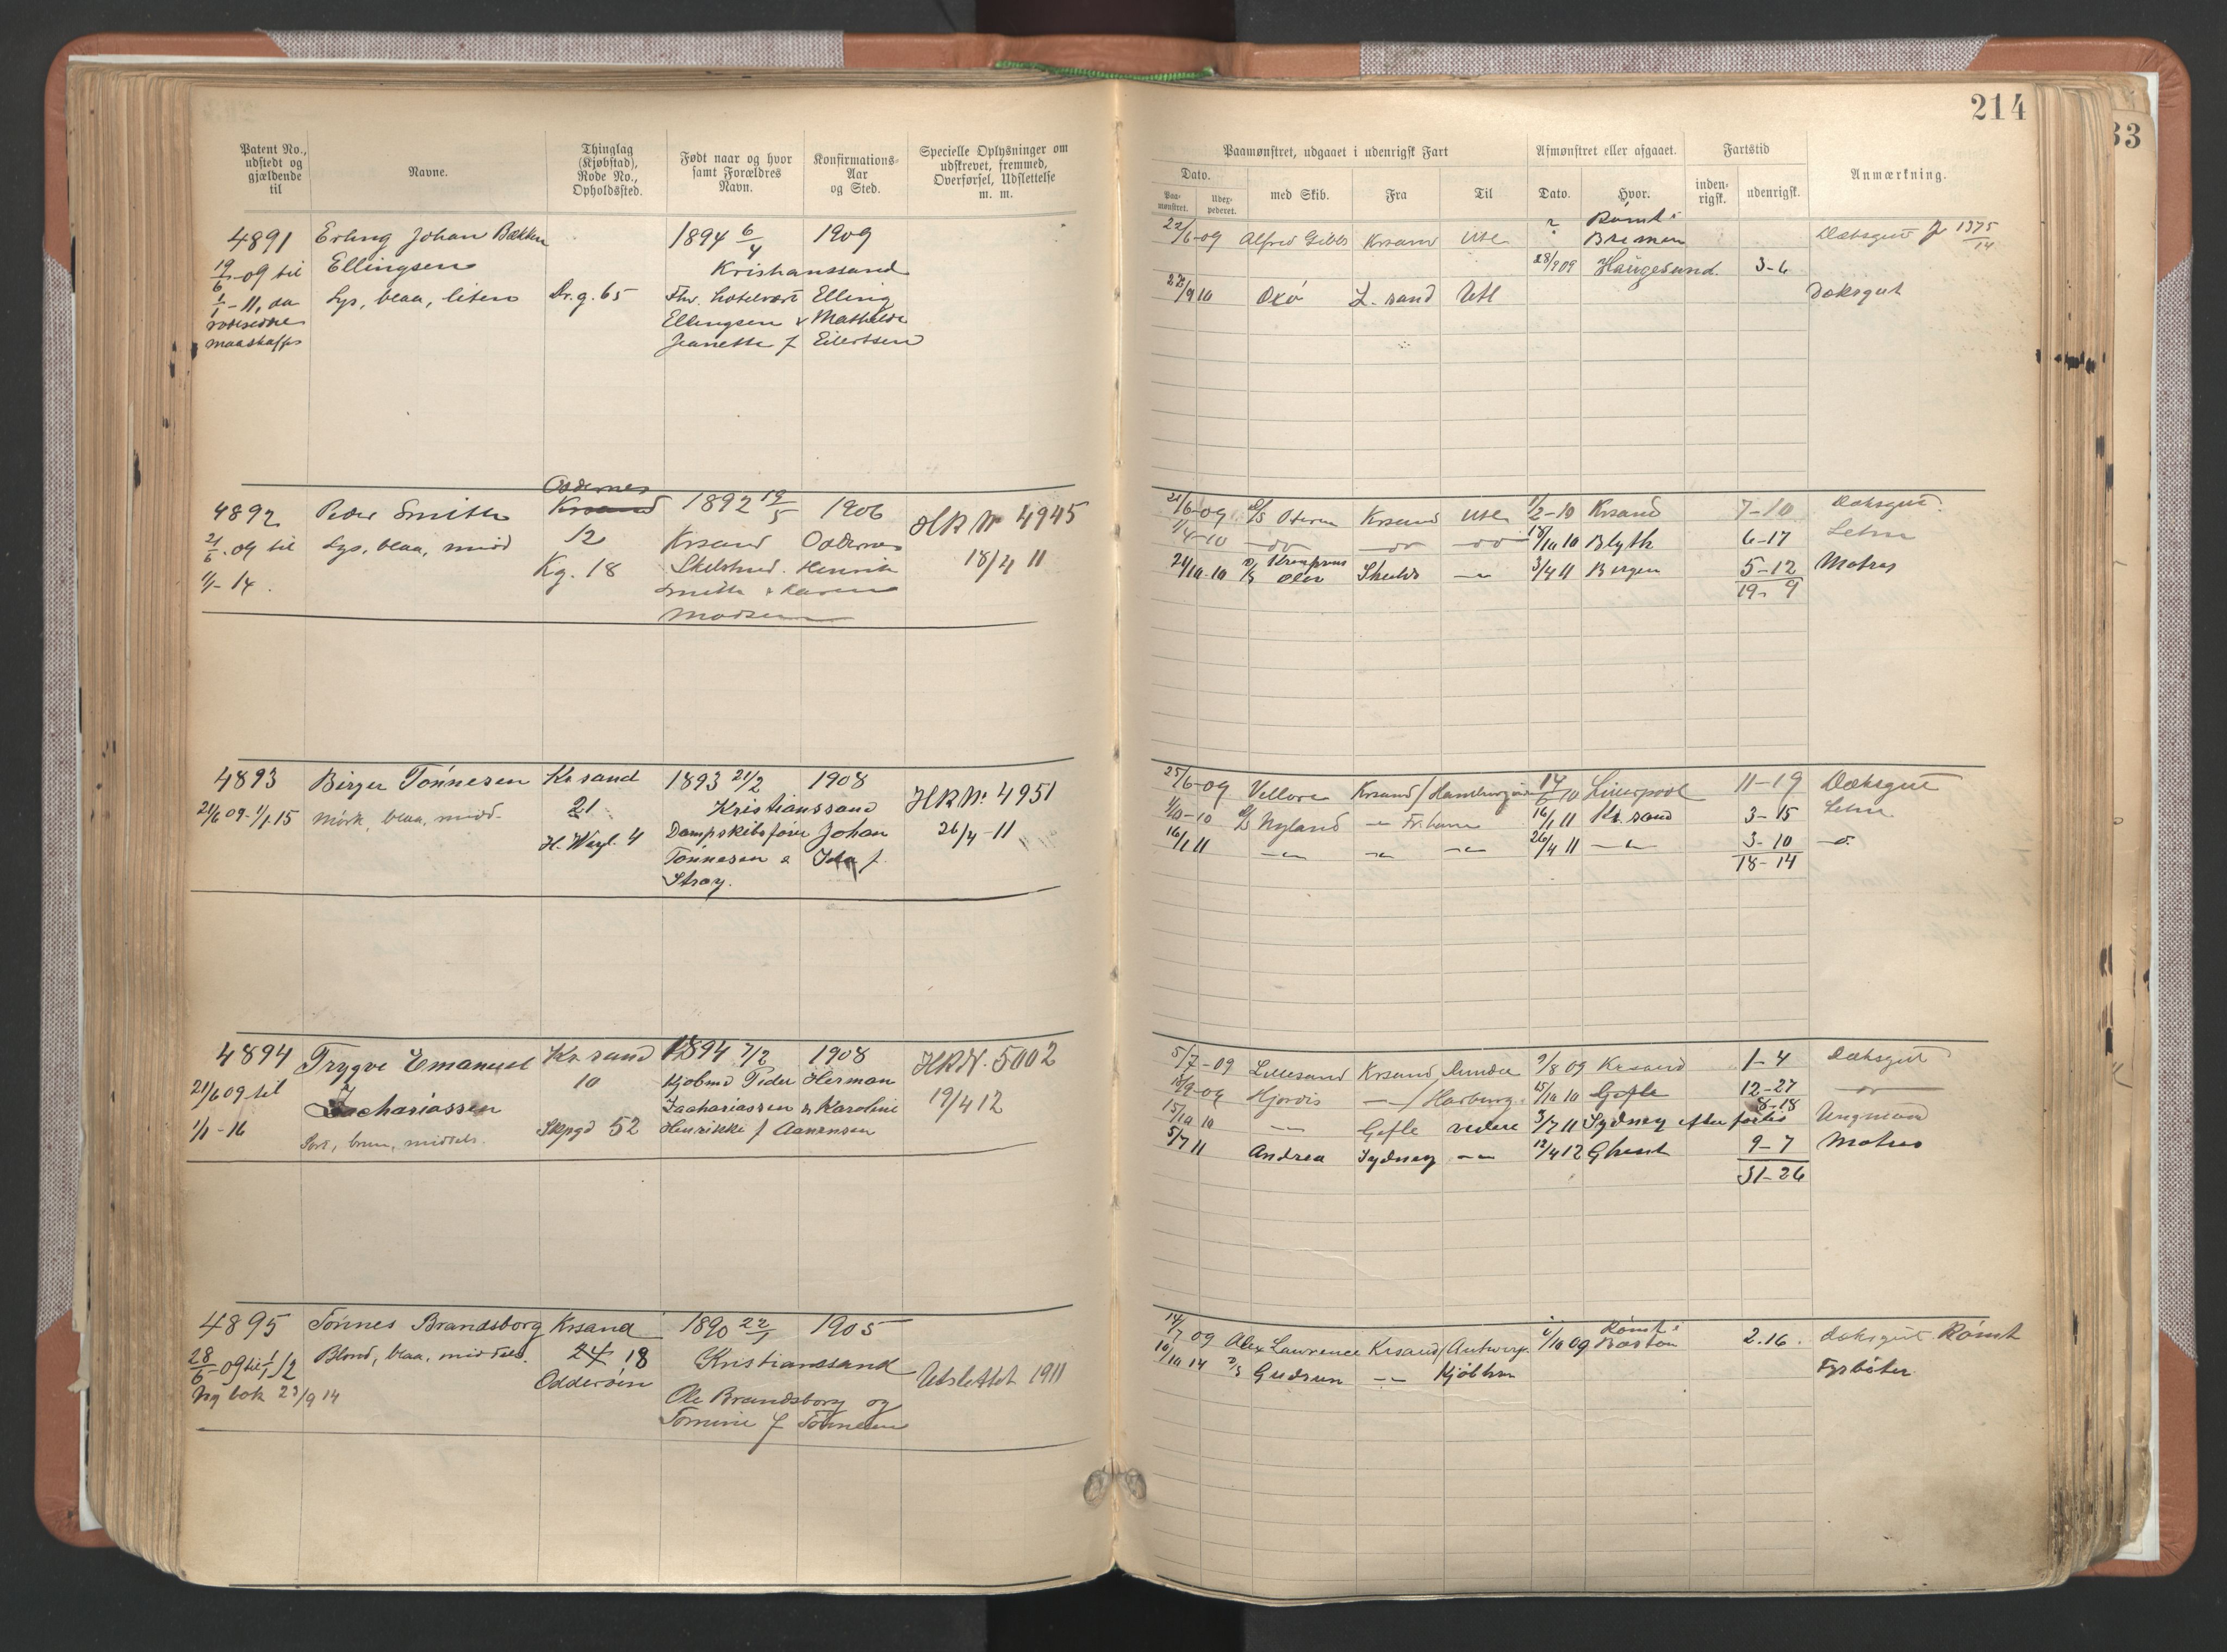 214
33
Patent No., udstedt og gjældende til
Navne.
Thinglag (Kjøbstad), Rode No., Opholdssted.
Født naar og hvor samt Forældres Navn.
Konfirmations-Aar og Sted.
Specielle Oplysninger om udskrevet, fremmed, Overførsel, Udslettelse m. m.
Paamønstret, udgaaet i udenrigsk Fart
Afmønstret eller afgaaet.
Fartstid
Anmærkning.
Dato.
Paa-mønstret.
Udex-pederet.
med Skib.
Fra
Til
Dato.
Hvor.
inden-rigsk.
udenrigsk.
4891 Erling Johan Bækken 1894 6/4 1909
19/6-09 til Ellingsen Kristianssand
1/1-11, da Lys, blaa, liten Dr.g. 65 Fhv. hotelvært Elling
Ellingsen & Mathilde
maaskaffes Jeanette f Eilertsen
22/6-09 Alfred Gibbs Krsand Ude ? Rømt i Bremen Dæksgut 1375/14
28/9 09 Haugesund 3-6
22/9 10 Oxø L. sand Utl Dæksgut
4892 Peder Smith Oddernes Krsand 1892 19/5 1906 HR Nr 4945
21/6.09 til Lys, blaa, midd 12 Krsand Oddernes 18/4 11
1/1-14. Kg. 18 Henrik
Smith & Karen
Madsen
21/6-09 D/S Oteren Krsand Ude 1/2-10 Krsand 7-10 Dæksgut.
1/4-10 -do- -do- -do- 18/10 10 Blyth 6-17 Letm
24/10-10 D/S Kronprins Olav Skulds -"- 3/4 11 Bergen 5-12 Matros
19-9
4893 Birger Tønnesen Kr.sand 1893 21/2 1908 HR Nr. 4951
21/6 09-1/1.15 Mørk, blaa, midd. 21 Kristianssand 26/4-11
H. Wergl. 4 Dampskibsfører Johan
Tønnesen & Ida f.
Stray.
25/6-09 Vellore Krsand / Hamburg 14/6 10 Liverpool 11-19 Dæksgut
D/S Nyland -"- Fr.havn 16/1 11 Kr.sand 3-15 Letm
16/1 11 -"- -"- -"- 26/4 11 -"- 3-10 -o-
18-14
4894 Trygve Emanuel Kr.sand 1894 7/2 1908 HR N. 5002
21/6 09 til Zachariassen 10 Kjøbmd Peder Herman 19/4 12
1/1-16 Sort, brun, middels. Skpgd 52 Zachariassen & Karoline
Henrikke f Aanensen
5/7-09 Lillesand Krsand Dundee 9/8 09 Krsand 1-4 Dæksgut
18/9-09 Hjørdis -"- / Harburg 15/10 10 Gefle 12-27 -o-
15/10 10 -"- Gefle videre 3/7 11 Sydney efter forlis 8-18 Ungmand
5/7 11 Andrea Sydney -"- 12/4 12 Ghent 9-7 Matros
31-26
4895 Tønnes Brandsborg Krsand 1890 22/1 1905
28/6-09 til 1/1 12 Blond, blaa, middels. 24 18 Kristianssand Utslettet 1911
Ny bok 23/9 14 Odderøen Ole Brandsborg og
Tomine f Tønnesen
14/7 09 Alex Lawrence Krsand / Antwerp. 2/10 09 Rømt i Boston 2.16. Dæksgut Rømt
10/10 14 D/S Gudrun -"- Kjøbhvn Fyrbøter